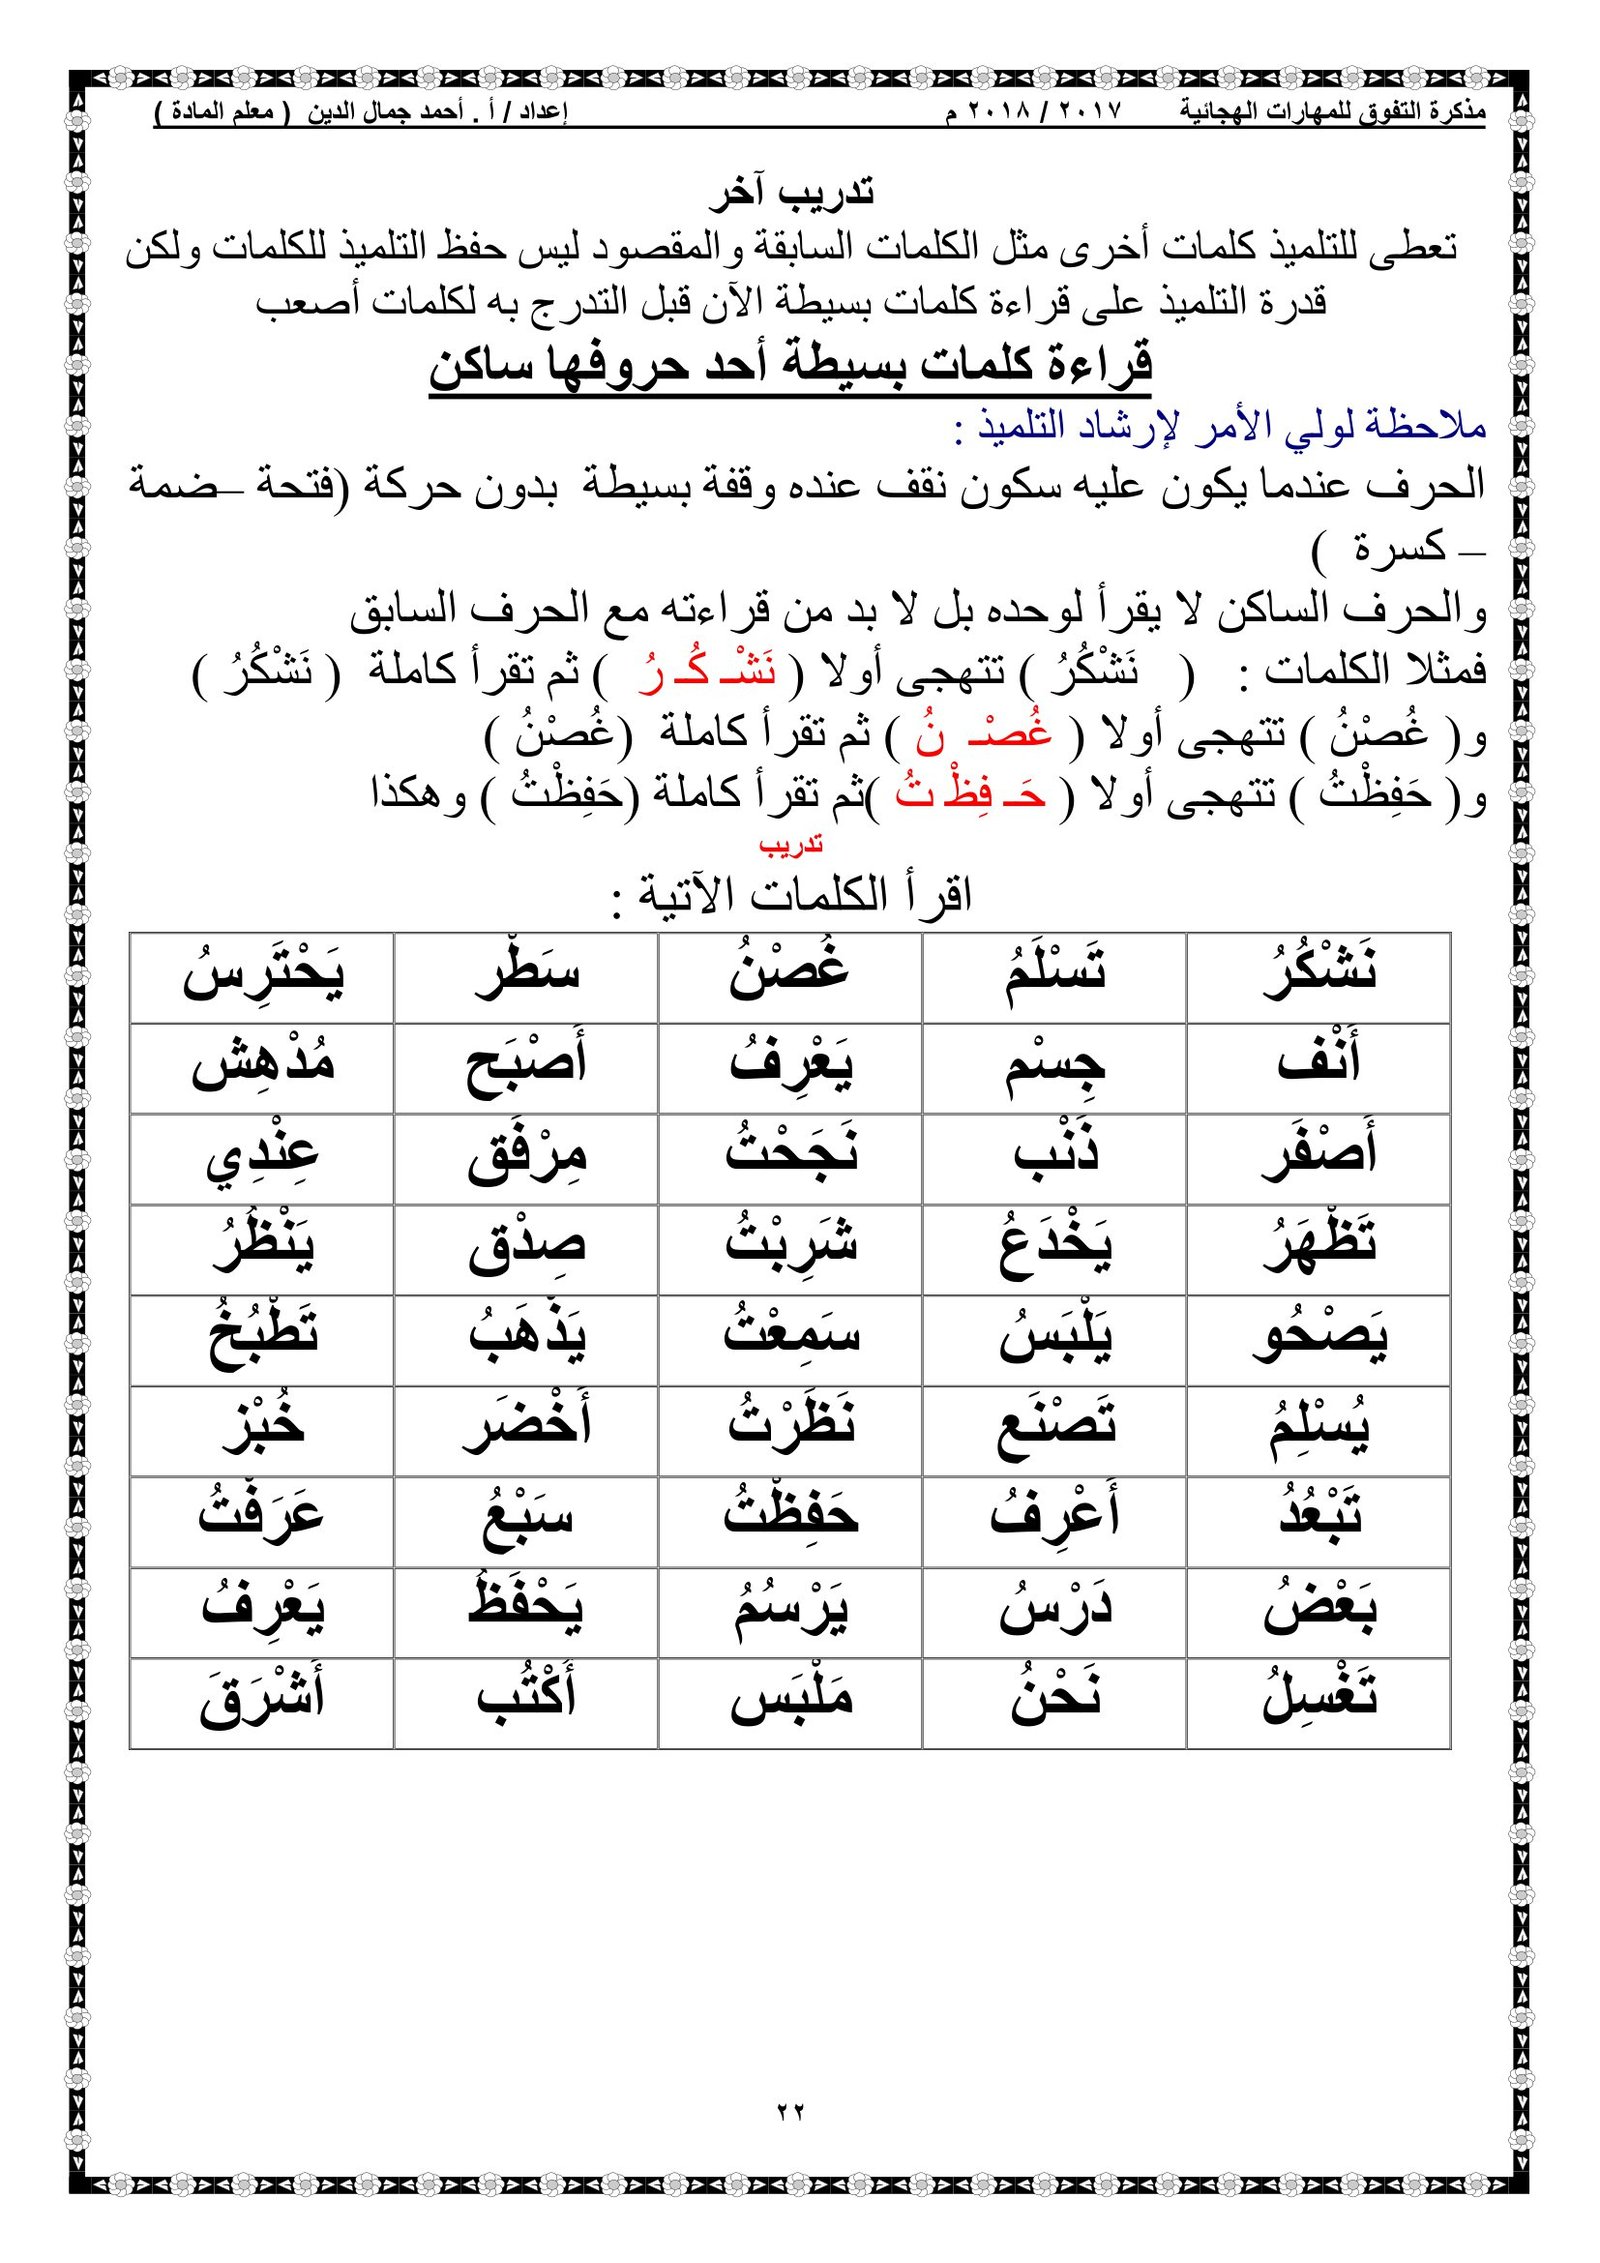 مذكرة التفوق للمهارات الهجائية ٢٠١٧ / ٢٠١٨ م إعداد / أ . أحمد جمال الدين ( معلم المادة )
تدريب آخر
تعطى للتلميذ كلمات أخرى مثل الكلمات السابقة والمقصود ليس حفظ التلميذ للكلمات ولكن
قدرة التلميذ على قراءة كلمات بسيطة الآن قبل التدرج به لكلمات أصعب
قراءة كلمات بسيطة أحد حروفها ساكن
ملاحظة لولي الأمر لإرشاد التلميذ :
الحرف عندما يكون عليه سكون نقف عنده وقفة بسيطة بدون حركة (فتحة –ضمة
– كسرة )
والحرف الساكن لا يقرأ لوحده بل لا بد من قراءته مع الحرف السابق
فمثلا الكلمات : ( نَشْكُرُ ) تتهجى أولا ( نَشْـ كُـ رُ ) ثم تقرأ كاملة ( نَشْكُرُ )
و( غُصْنُ ) تتهجى أولا ( غُصْـ نُ ) ثم تقرأ كاملة (غُصْنُ )
و( حَفِظْتُ ) تتهجى أولا ( حَـ فِظْـ تُ )ثم تقرأ كاملة (حَفِظْتُ ) وهكذا
تدريب
اقرأ الكلمات الآتية :
نَشْكُرُ تَسْلَمُ غُصْنُ سَطْر يَحْتَرِسُ
أَنْف جِسْم يَعْرِفُ أَصْبَح مُدْهِش
أَصْفَر ذَنْب نَجَحْتُ مِرْفَق عِنْدِي
تَظْهَرُ يَخْدَعُ شَرِبْتُ صِدْق يَنْظُرُ
يَصْحُو يَلْبَسُ سَمِعْتُ يَذْهَبُ تَطْبُخُ
يُسْلِمُ تَصْنَع نَظَرْتُ أَخْضَر خُبْز
تَبْعُدُ أَعْرِفُ حَفِظْتُ سَبْعُ عَرَفْتُ
بَعْضُ دَرْسُ يَرْسُمُ يَحْفَظُ يَعْرِفُ
تَغْسِلُ نَحْنُ مَلْبَس أَكْتُب أَشْرَقَ
٢٢